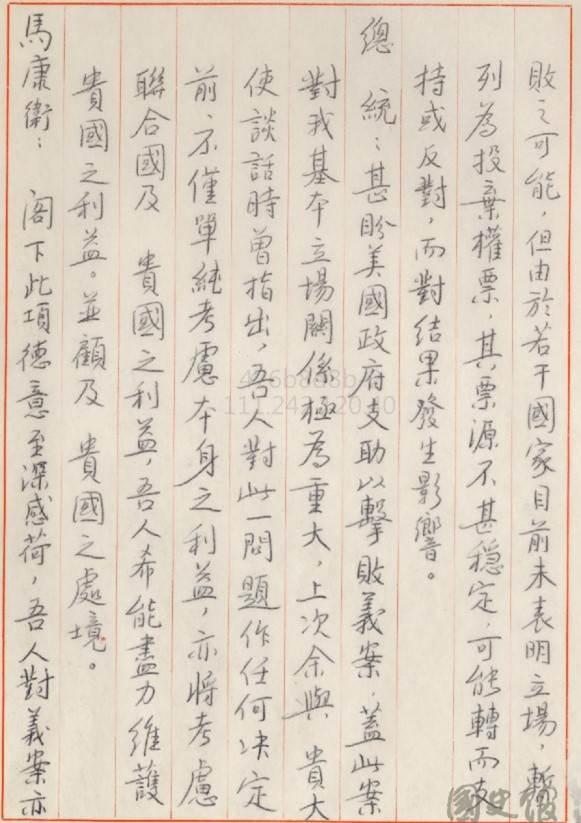 敗之可能，但由於若干國家目前未表明立場，暫
列為投棄權票，其票源不甚穩定，可能轉而支
持或反對，而對結果發生影響。
總　統：甚盼美國政府支助以擊敗義案，蓋此案
對我基本立場關係極為重大，上次余與　貴大
使談話時曾指出，吾人對此一問題作任何決定
前，不僅單純考慮本身之利益，亦將考慮
聯合國及　貴國之利益，吾人希能盡力維護
貴國之利益。並顧及　貴國之處境。
馬康衛：　閣下此項德意至深感荷，吾人對義案亦
國史館